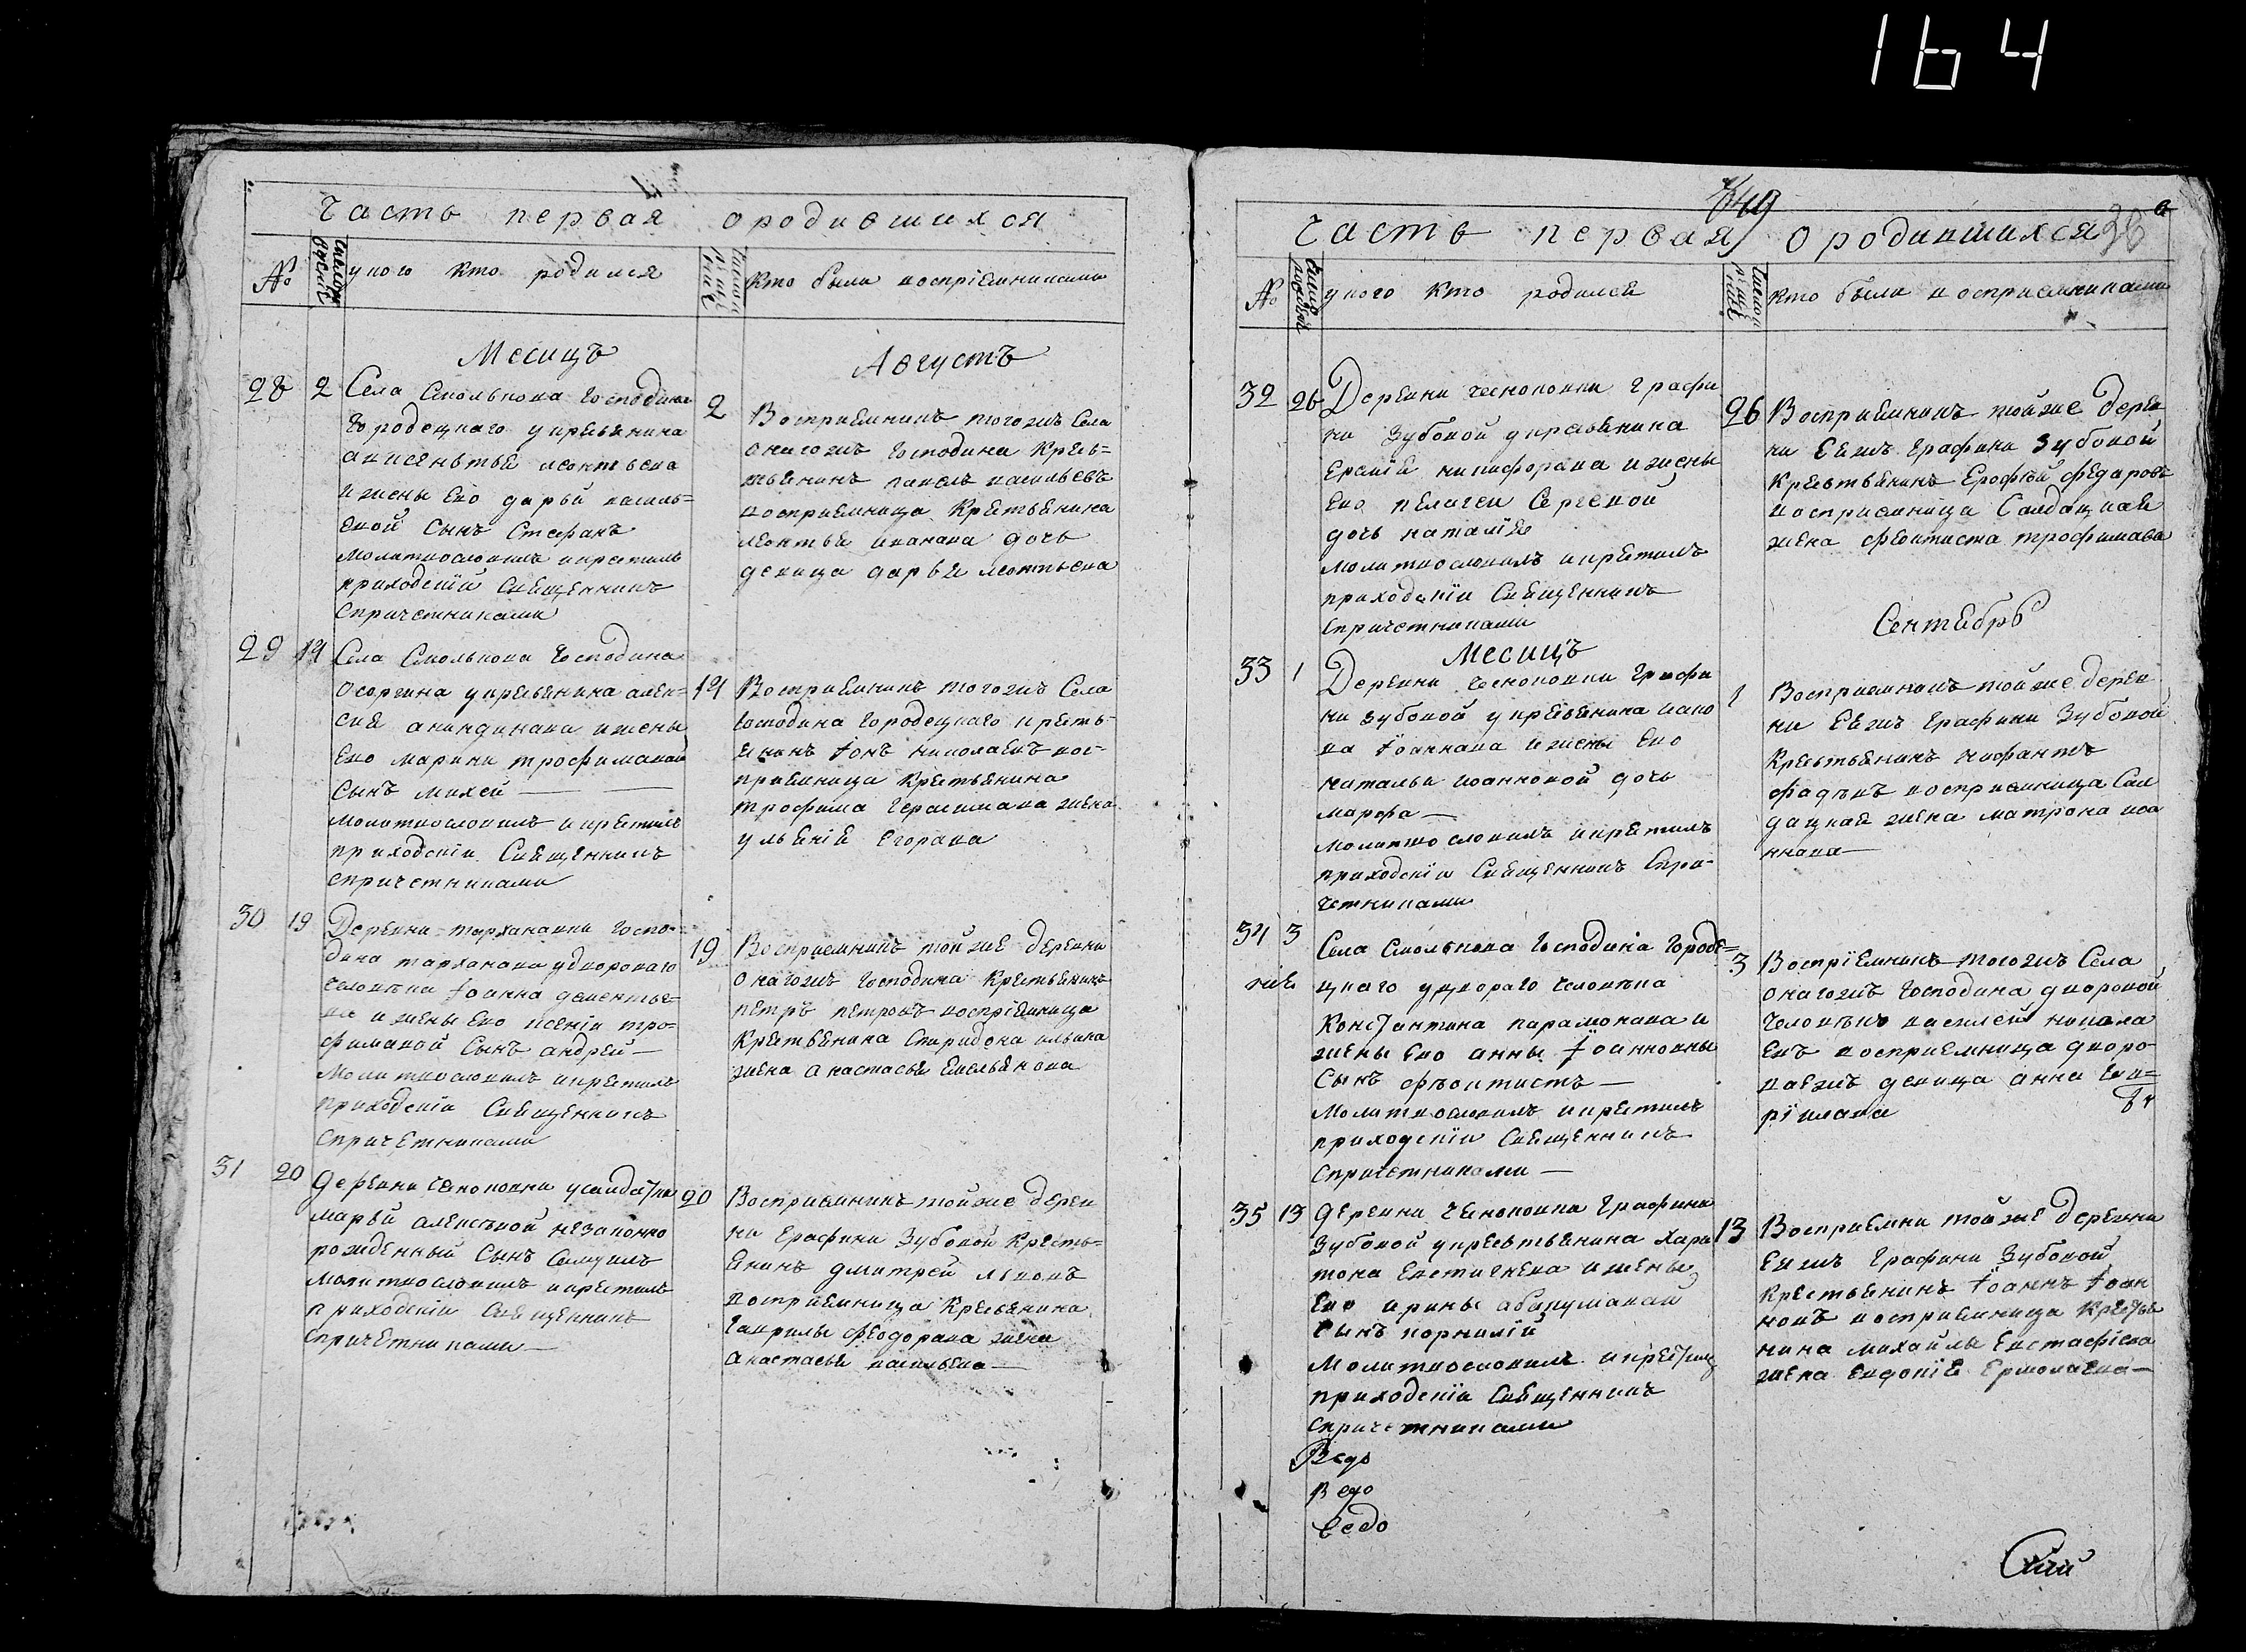 164
Часть первая ородившихся
№
число рожден
укого кто родился
число крещения
Кто были воспріемниками
Месицъ
Августъ
28 2 Села Смолькова Господина
Городецкаго укресьянина
авксеньтья леонтьева
и жены Ево дарьи василь=
евой сынъ Стефанъ
молитвословилъ икрестилъ
приходскій Священникъ
спричетниками
2
Восприемникъ тогожъ Села
онагожъ Господина Кресь=
тьянинъ павелъ васильевъ
восприемница Крестьянина
леонтья иванава дочь
девица дарья леонтьева
29 19 Села Смолькова Господина
Осоргина укресьянина алек=
сия акиндинава ижены
Ево марины трофимавай
Сынъ михей
молитвословилъ икрестилъ
приходскіи Священникъ
спричетниками
19 Востриемникъ тогожъ Села
Господина Городецкаго кресть-
янинъ Іонъ николаевъ вос-
приемница Крестьянина
трофима Герасимава жена
ульяніи Егорава
30 19 Деревни тархановки Госпо-
дина тарханава удворонаго
человека Іоанна деменьтье-
ва ижены Ево ксеніи тро-
фимавой Сынъ андрей
молитвословилъ икрестилъ
приходскіи Священникъ
спричетниками
19 Восприемникъ тойже деревни
онагожъ Господина Крестьянинъ
петръ петровъ воспріемница
Крестьянина Спиридона ильина
жена анастасья Емельянова
31 20 деревни чесноковки усалдатки
марьи алексевой незаконно
рожденный Сынъ Самуилъ
молитвословилъ икрестилъ
приходскіи Священникъ
спричетниками
20 Восприемникъ тойже дерев
ни Ерафини Зубовой Кресть=
янинъ дмитрей львовъ
восприемница Кресьянина
Гаврилы феодорава жена
анастасья васильева
Часть первая ородившихся
№
число рожден
укого кто родился
число крещения
кто были восприемниками
32 26 Деревни чесноковки графи
ни Зубовой укресьянина
Ермиія никифорава ижены
Ево пелагеи Сергевой
дочь наталія
молитвословилъ икрестилъ
приходскіи Священникъ
спричетниками
26 Восприемникъ тойже дерев
ни Еяжъ Графини Зубовой
Крестьянинъ Ерофей федаровъ
восприемница Салдацкая
жена феоктиста трофимава
Месицъ
Сентябрь
33 1 Деревни чесноковки графи
ни зубовой укресьянина иако
ва Іоаннава ижены Ево
натальи иоанновой дочь
марфа
молитвословилъ икрестилъ
приходскіи Священникъ Спри-
четниками
1 Восприемникъ тойже дерев
ни Еяжъ Графини Зубовой
Крестьянинъ
фадеевъ восприемница Сал
дацкая жена матрона иоа
ннава
34 3 Села Смолькова Господина Городе=
цкаго удвораго человека
Константина парамонава и
жены Ево анны Іоанновны
Сынъ феоктистъ
молитвословилъ икрестилъ
приходскіи Священникъ
спричетниками
3 Воспріемникъ тогожъ Села
онагожъ Господина дворовой
человекъ василей никола
евъ восприемница дворо-
ваяжъ девица анна
35 13 деревни чесноковки Графини
Зубовой укрестьянина Хари
тона Евстигнева ижены
Ево ирины абакумавай
Сынъ корнилій
молитвословилъ икрестилъ
приходскіи Священникъ
спричетниками
13 Восприемни тойже деревни
Еяжъ Графини Зубовой
Крестьянинъ Іоаннъ Іоан
новъ восприемница Крестья
нина михайлы Евстафіева
жена Евдокія Ермолаева
Ведо
Ведо
Ведо